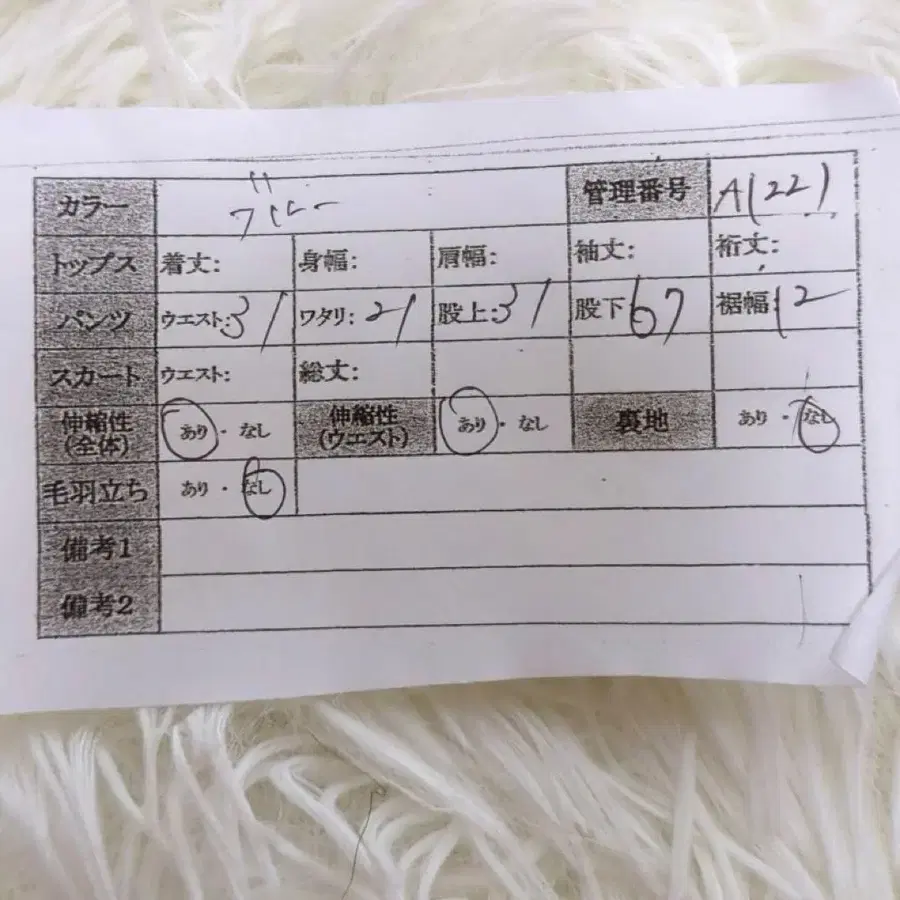 カラー ブルー 管理番号 A(22)
トップス 着丈: 身幅: 肩幅: 袖丈: 裄丈:
パンツ ウエスト:31 ワタリ:21 股上:31 股下67 裾幅12
スカート ウエスト: 総丈:
伸縮性(全体) あり・なし 伸縮性(ウエスト) あり・なし 裏地 あり・なし
毛羽立ち あり・なし
備考1
備考2